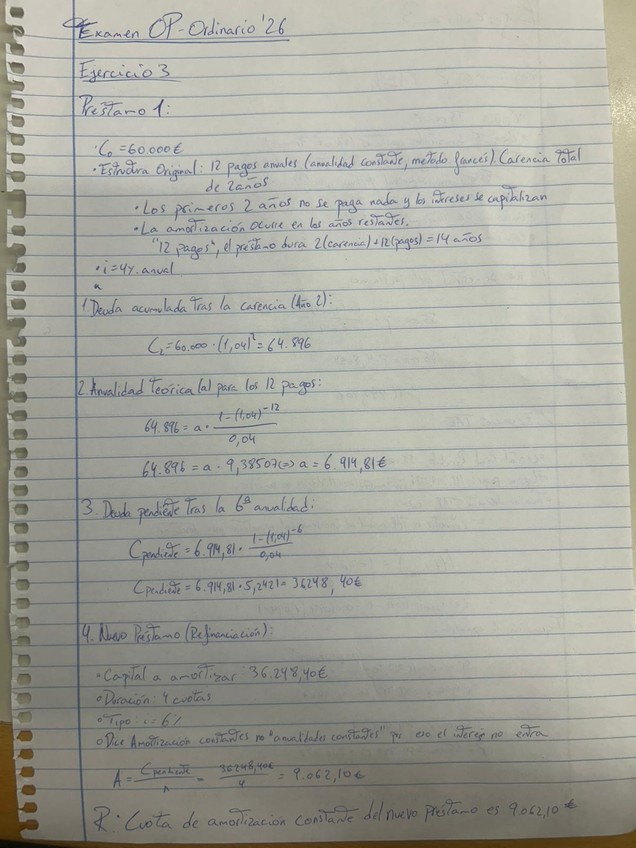 Examen OP-Ordinario '26
Ejercicio 3
Préstamo 1:
· C₀ = 60000€
· Estructura Original: 12 pagos anuales (anualidad constante, metodo francés). Carencia Total
de 2 años
· Los primeros 2 años no se paga nada y los intereses se capitalizan
· La amortización ocurre en los años restantes.
"12 pagos", el préstamo dura 2 (carencia) + 12 (pagos) = 14 años
· i = 4% anual
1. Deuda acumulada tras la carencia (Año 2):
C₂ = 60.000 · (1,04)² = 64.896
2. Anualidad Teórica (a) para los 12 pagos:
64.896 = a · (1-(1,04)⁻¹²)/0,04
64.896 = a · 9,38507 <=> a = 6.914,81€
3. Deuda pendiente tras la 6ª anualidad:
Cpendiente = 6.914,81 · (1-(1,04)⁻⁶)/0,04
Cpendiente = 6.914,81 · 5,2421 = 36248,40€
4. Nuevo Préstamo (Refinanciación):
· Capital a amortizar: 36.248,40€
· Duración: 4 cuotas
· Tipo: i = 6%
· Dice Amortización constantes no "anualidades constantes" por eso el interés no entra
A = Cpendiente/n = 36248,40€/4 = 9.062,10€
R: Cuota de amortización constante del nuevo préstamo es 9.062,10€